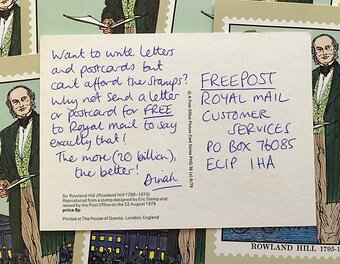 Want to write letters
and postcards but
can't afford the stamps?
Why not send a letter
or postcard for FREE
to Royal Mail to say
exactly that!
The more (20 billion),
the better! Dinah
Sir Rowland Hill (Rowland Hill 1795–1879)
Reproduced from a stamp designed by Eric Stemp and
issued by the Post Office on the 22 August 1979
price 8p
Printed at The House of Questa, London, England
© A Post Office Picture Card Series PHQ 38 (a) 8/79
FREEPOST
ROYAL MAIL
CUSTOMER
SERVICES
PO BOX 76085
EC1P 1HA
ROWLAND HILL 1795-1